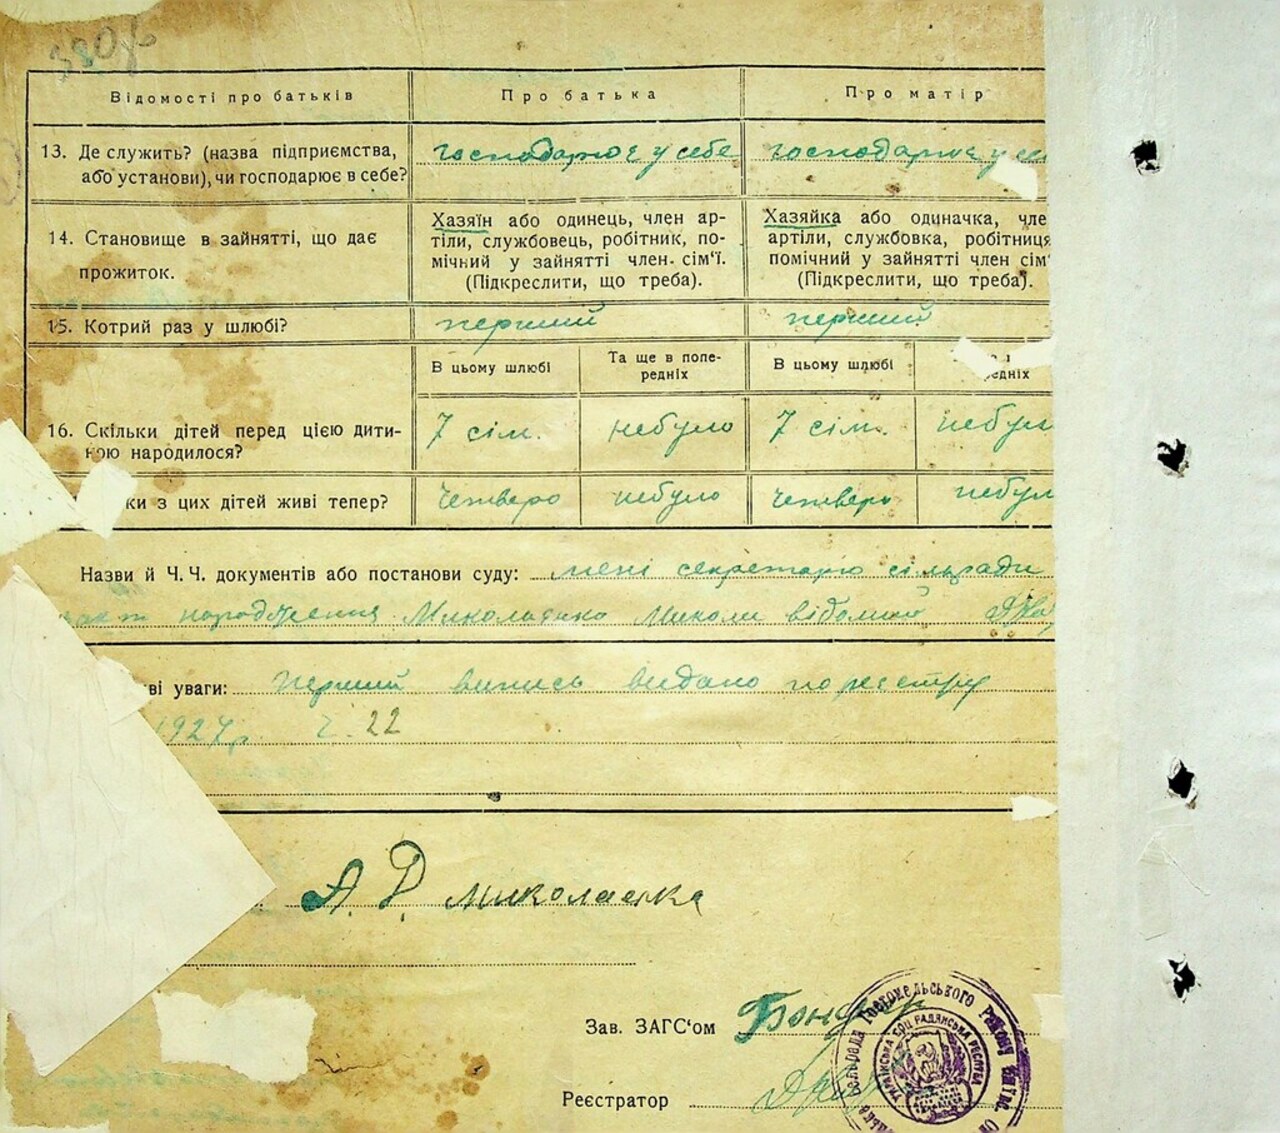 Відомості про батьків
Про батька
Про матір
13. Де служить? (назва підприємства,
або установи), чи господарює в себе?
господарює у себе
господарює у се
14. Становище в зайнятті, що дає
прожиток.
Хазяїн або одинець, член ар-
тіли, службовець, робітник, по-
мічний у зайнятті член сім'ї.
(Підкреслити, що треба).
Хазяйка або одиначка, чле
артіли, службовка, робітниця
помічний у зайнятті член сім'
(Підкреслити, що треба).
15. Котрий раз у шлюбі?
перший
перший
В цьому шлюбі
Та ще в попе-
редніх
В цьому шлюбі
редніх
16. Скільки дітей перед цією дити-
ною народилося?
7 сім.
небуло
7 сім.
небул
ки з цих дітей живі тепер?
четверо
небуло
четверо
небул
Назви й Ч.Ч. документів або постанови суду: мені секретарю сільради
факт народження Миколаєнко Миколи відомий
ві уваги: Перший випись видано по реєстру
1927р. Ч. 22
А. Р. Миколаєнка
Зав. ЗАГС'ом
Реєстратор